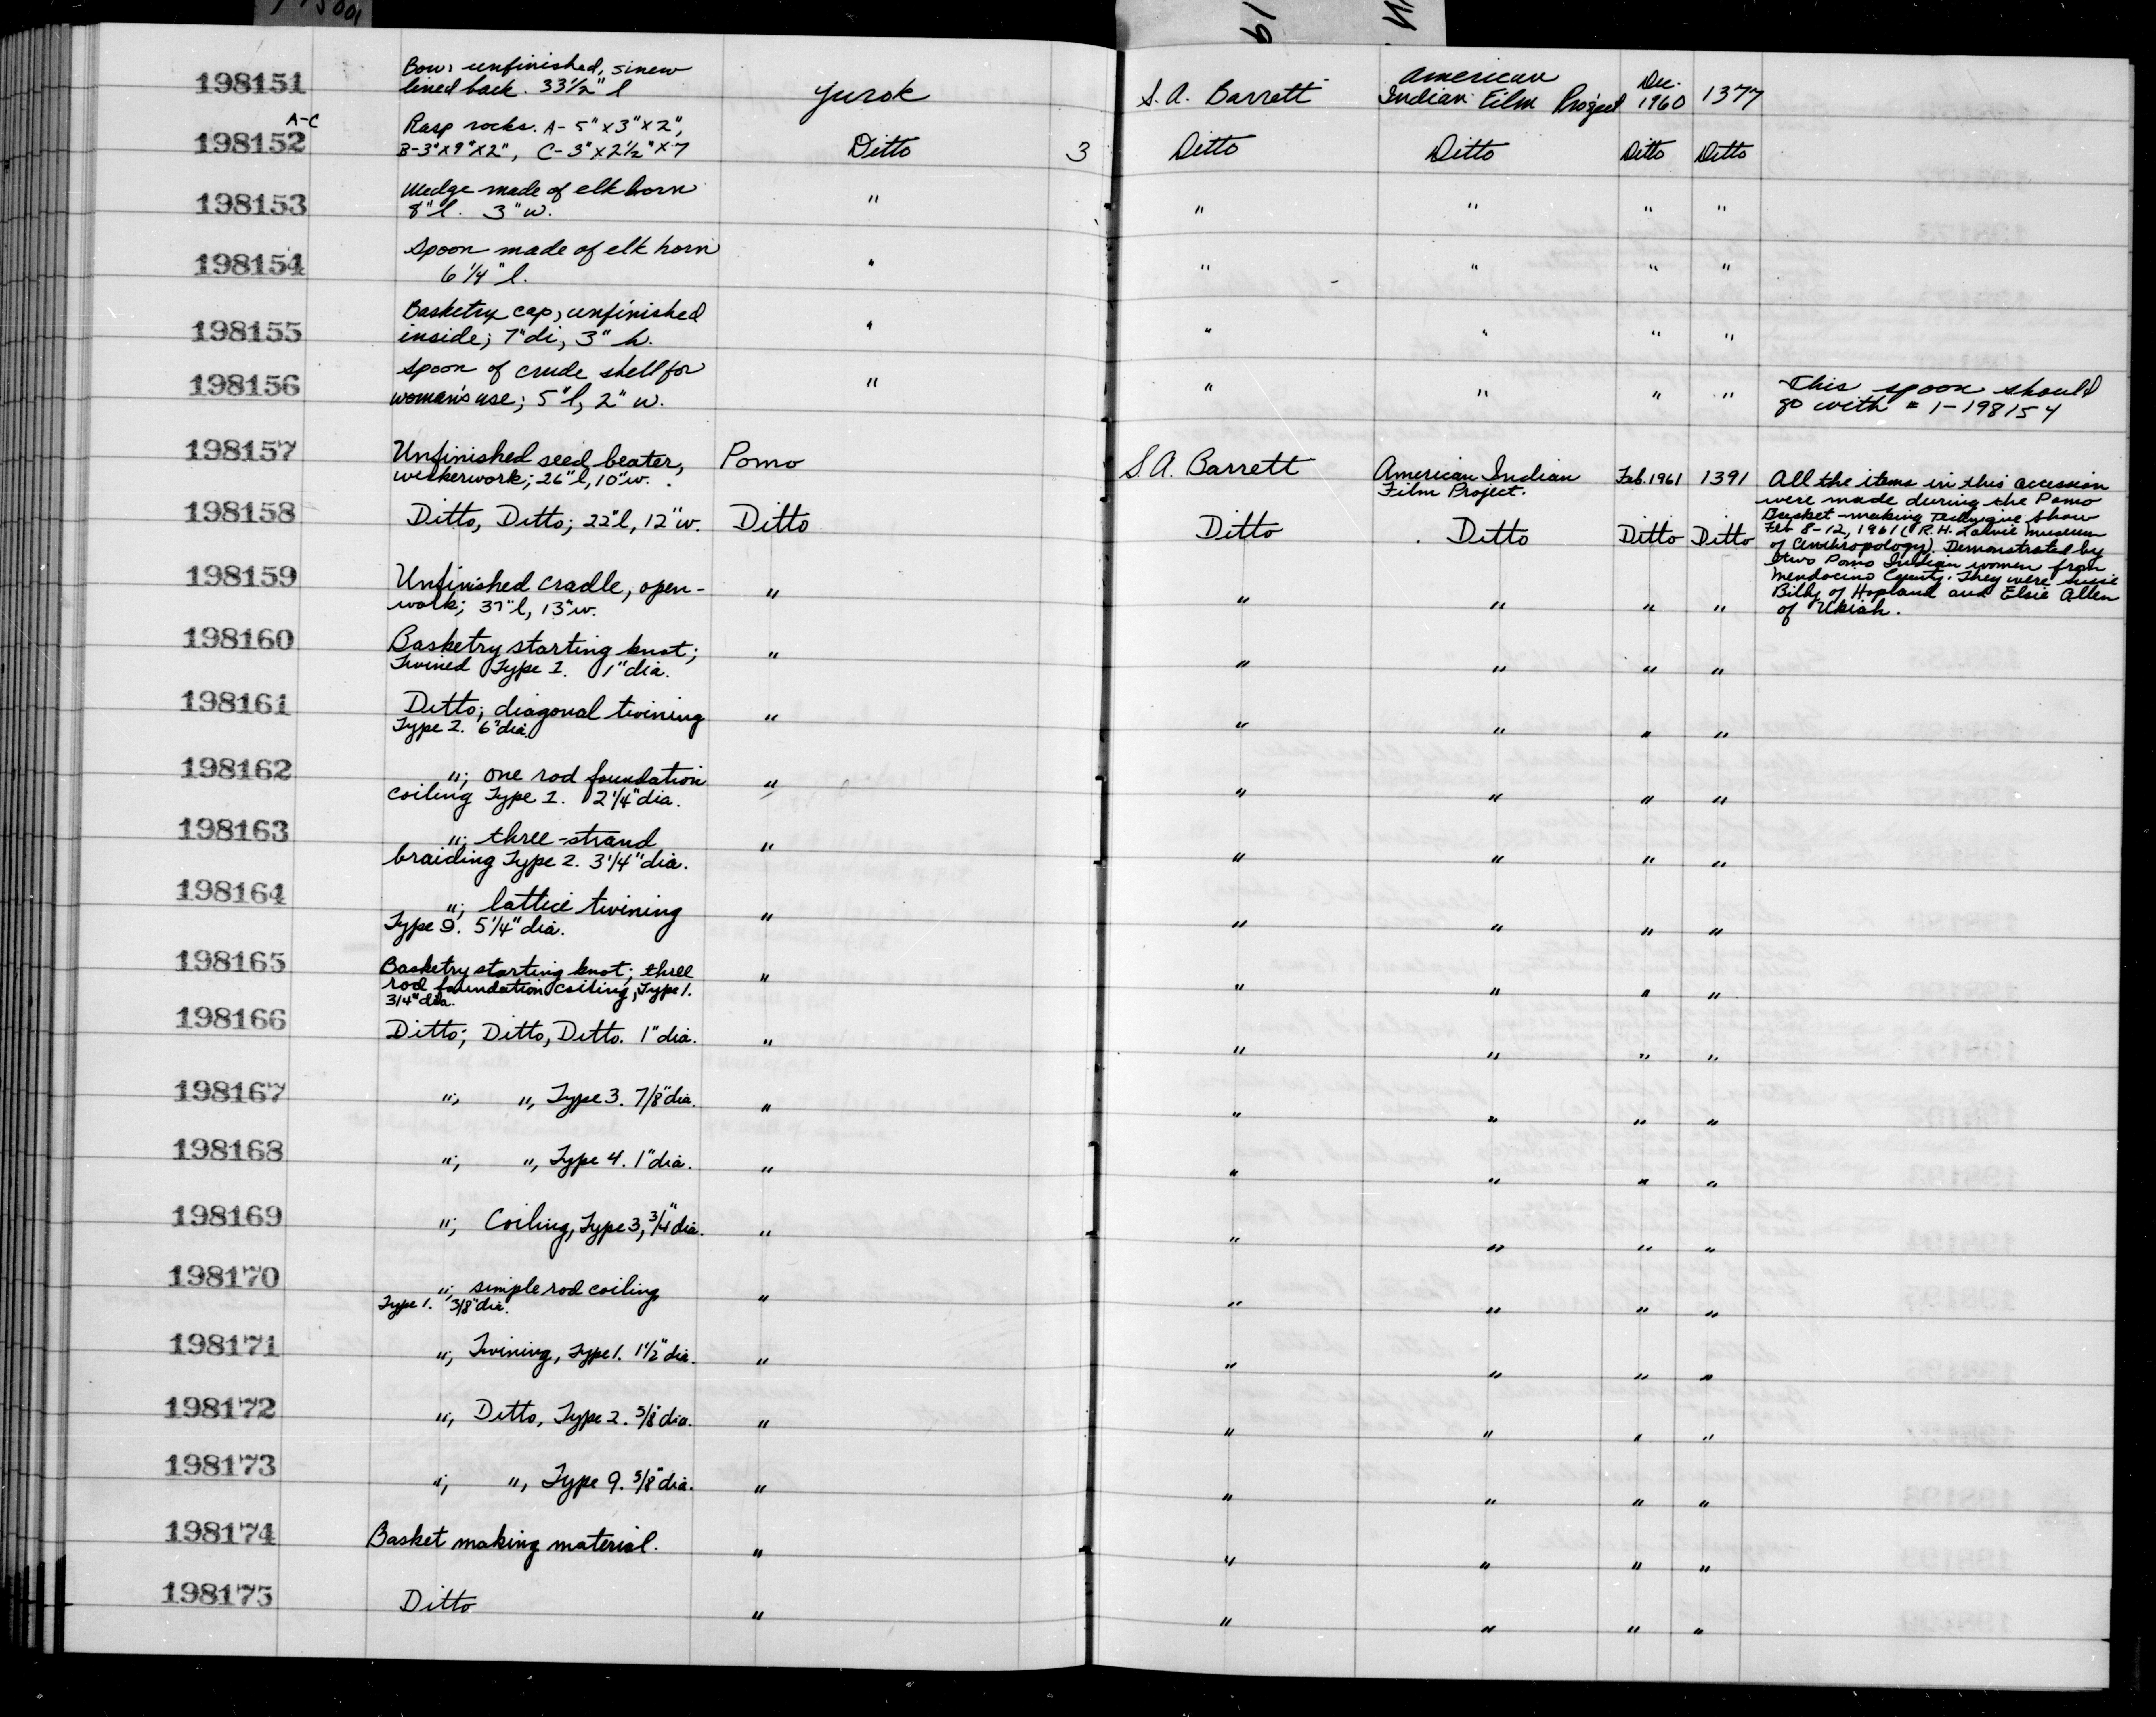 198151 Bow: unfinished, sinew
lined back. 33½" l Yurok S.A. Barrett American Indian Film Project Dec. 1960 1377
A-C
198152 Rasp rocks. A- 5" x 3" x 2",
B-3"x9"x2", C-3"x2½"x7 Ditto 3 Ditto Ditto Ditto Ditto
198153 Wedge made of elk horn
8" l. 3" w. " " " " "
198154 Spoon made of elk horn
6¼" l. " " " " "
198155 Basketry cap, unfinished
inside; 7" di, 3" h. " " " " "
198156 Spoon of crude shell for
woman's use; 5" l, 2" w. " " " " " This spoon should
go with # 1-198154
198157 Unfinished seed beater,
wickerwork; 26" l, 10" w. Pomo S.A. Barrett American Indian
Film Project. Feb. 1961 1391
198158 Ditto, Ditto; 22" l, 12" w. Ditto Ditto Ditto Ditto Ditto
All the items in this accession
were made during the Pomo
Basket-making Technique Show
Feb 8-12, 1961 (R.H. Lowie Museum
of Anthropology). Demonstrated by
two Pomo Indian women from
Mendocino County. They were Susie
Billy of Hopland and Elsie Allen
of Ukiah.
198159 Unfinished cradle, open-
work; 37" l, 13" w. " " " " "
198160 Basketry starting knot;
Twined Type 1. 1" dia. " " " " "
198161 Ditto; diagonal twining
Type 2. 6" dia. " " " " "
198162 "; one rod foundation
coiling Type 1. 2¼" dia. " " " " "
198163 "; three-strand
braiding Type 2. 3¼" dia. " " " " "
198164 "; lattice twining
Type 9. 5¼" dia. " " " " "
198165 Basketry starting knot; three
rod foundation coiling, Type 1.
3/4" dia. " " " " "
198166 Ditto; Ditto, Ditto. 1" dia. " " " " "
198167 "; ", Type 3. 7/8" dia. " " " " "
198168 "; ", Type 4. 1" dia. " " " " "
198169 "; Coiling, Type 3, 3/4" dia. " " " " "
198170 "; simple rod coiling
Type 1. 3/8" dia. " " " " "
198171 "; Twining, Type 1. 1½" dia. " " " " "
198172 "; Ditto, Type 2. 5/8" dia. " " " " "
198173 "; ", Type 9. 5/8" dia. " " " " "
198174 Basket making material. " " " " "
198175 Ditto " " " " "